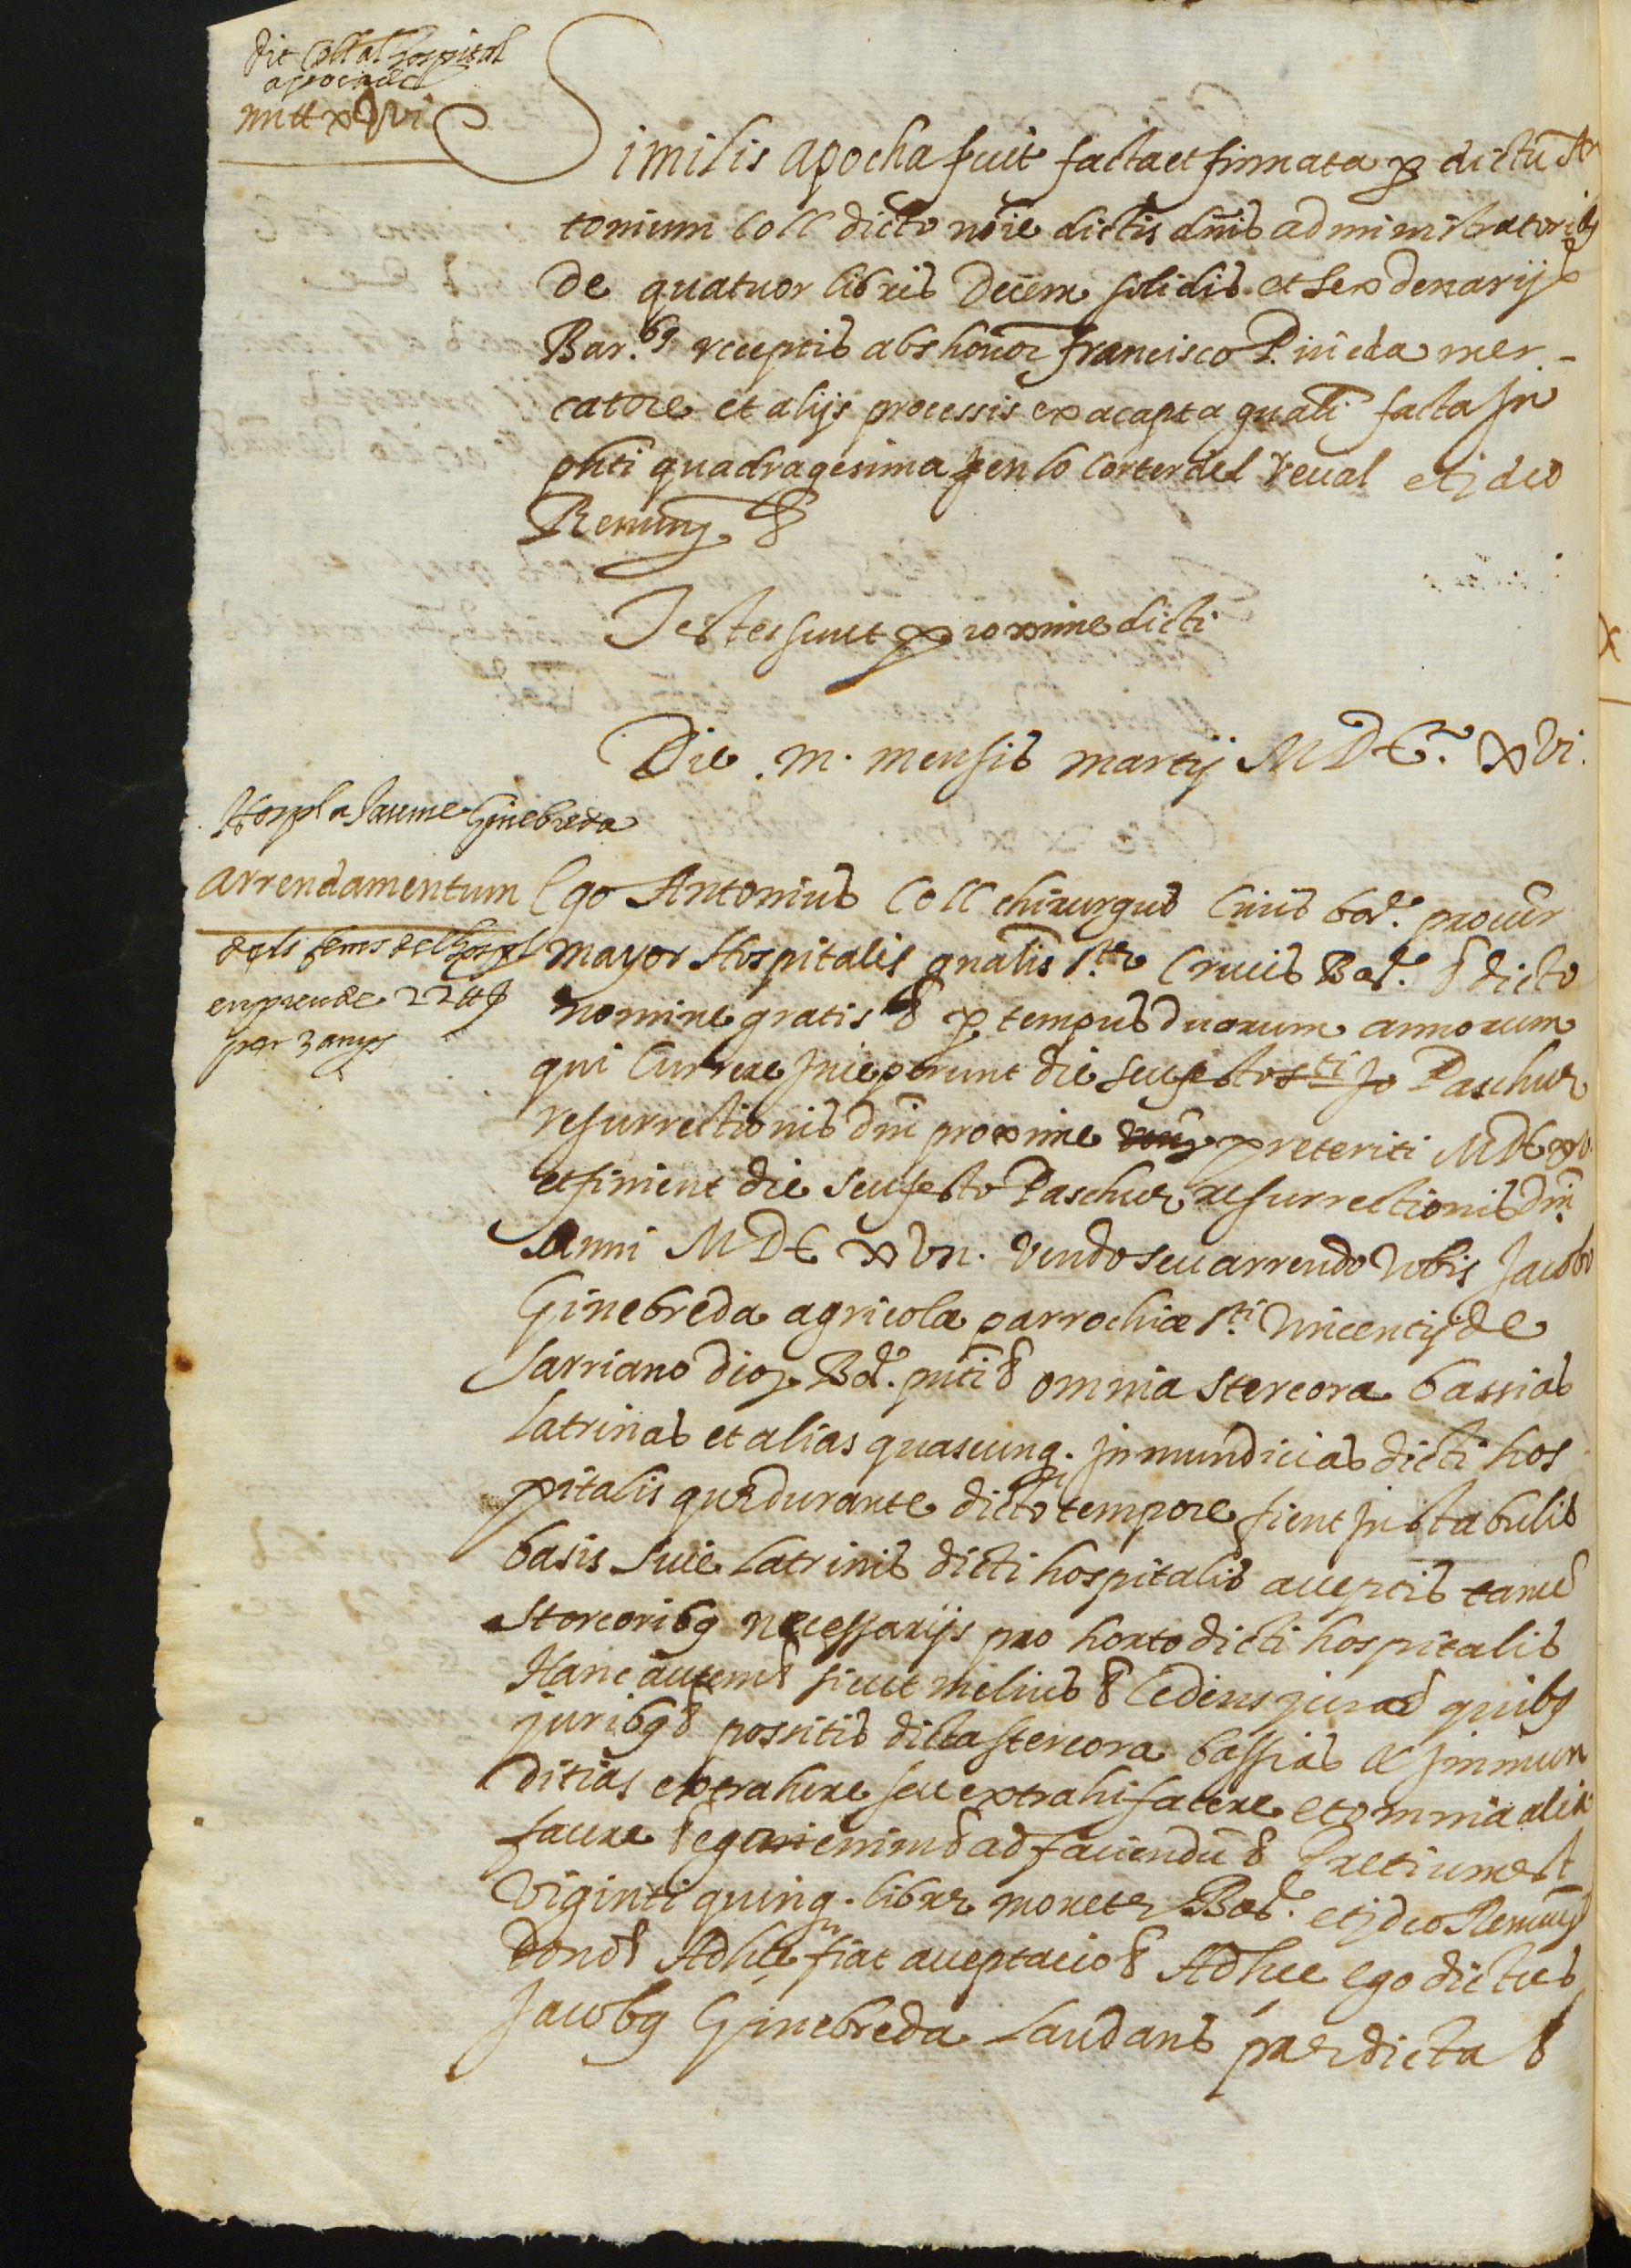 dit Coll al hospital
apocha de
iiii ℔ x ß vi
Similis apocha fuit facta et firmata p dictũ An
tonium Coll dicto noĩe dictis dnĩs administratorib9
de quatuor libris decem solidis et sex denarijs
Bar. receptis abs honor francisco Pineda mer-
catore et alijs processis ex acapta gnali facta In
pnti quadragesima en lo corter del Reual et ideo
Renung &
Testes sunt proxime dicti
Die .iii. mensis martij MDC. xvi.
Hospl a Jaume Ginebreda
arrendamentum
dels fems del hospl
en preu de 22 ℔
per 3 anys
Ego Antonius Coll chirurgus Civis bar. procur
mayor Hospitalis gnalis Ste Crucis Bar. & dicto
nomine gratis & p tempus duorum annorum
qui Currere Inceperunt die seu festo Paschue
resurrectionis dnĩ proxime preteriti MDC xv
et finient die seu festo Paschue resurrectionis dnĩ
Anni MDC xvii. vendo seu arrendo vobis Jacobo
Ginebreda agricola parrochiæ Sti Vincentij de
Sarriano dioc. Bar. pnti & omnia stercora bassias
latrinas et alias quascunq. Inmundicias dicti hos
pitalis que durante dicto tempore fient In stabulis
basis sive latrinis dicti hospitalis acceptis tamẽ
Stercorib9 necessarijs pro horto dicti hospitalis
Hanc autem & sicut melius & Cedens jura & quib9
jurib9 & possitis dicta stercora bassias & Inmun
ditias extrahere seu extrahi facere et omnia alia
facere & ego enim & ad faciendũ & Pretium est
viginti quinq. libre monete Bar. et ideo Renung
dono & Ad hec fiat acceptacio & Ad hec ego dictus
Jacob9 Ginebreda laudans predicta &